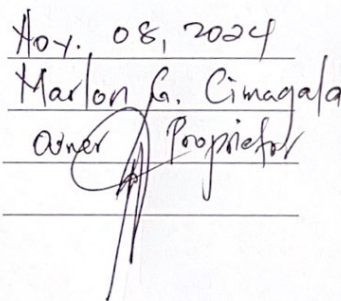 Nov. 08, 2024
Marlon G. Cimagala
Owner Proprietor